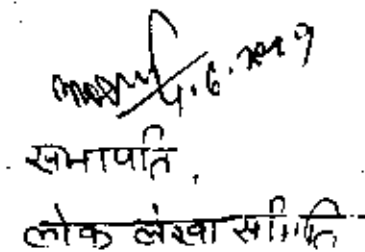 4.6.2009
सभापति,
लोक लेखा समिति